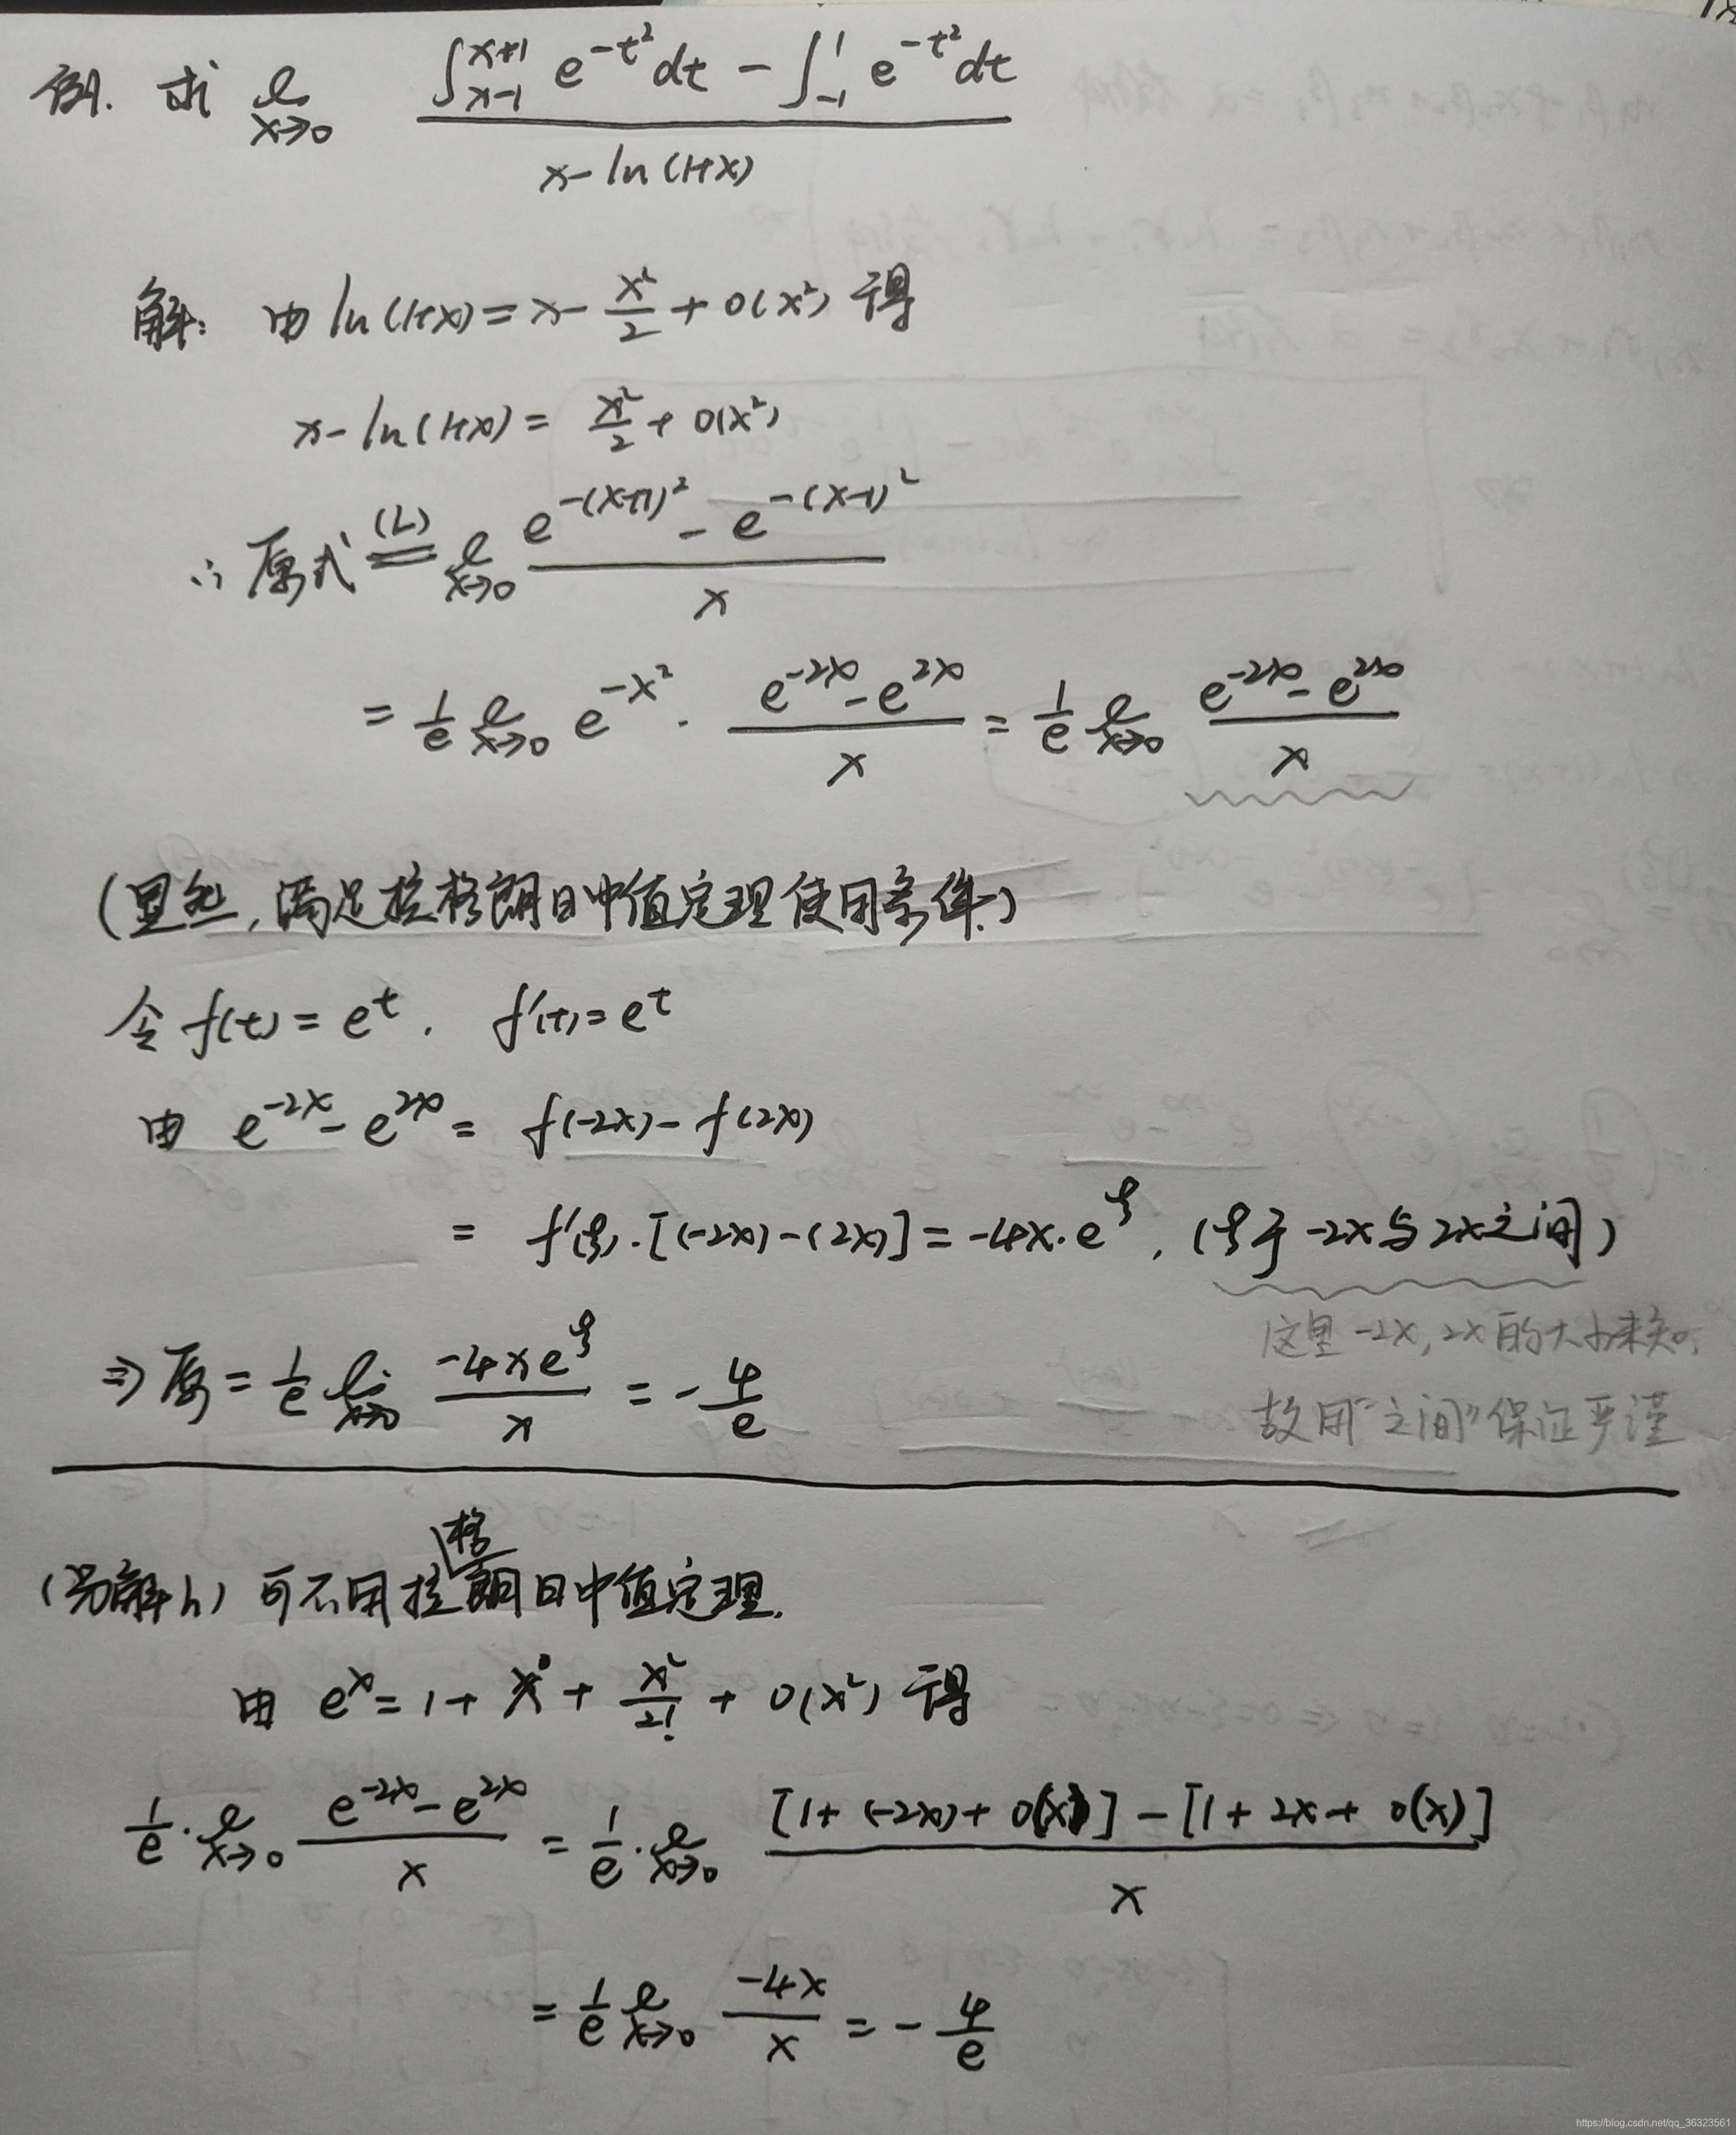 例. 求 lim x→0 (∫_{x-1}^{x+1} e^{-t²}dt - ∫_{-1}^{1} e^{-t²}dt) / (x-ln(1+x))
解: 由 ln(1+x) = x - x²/2 + o(x²) 得
x-ln(1+x) = x²/2 + o(x²)
∴ 原式 =(L) lim x→0 (e^{-(x+1)²} - e^{-(x-1)²}) / x
= 1/e lim x→0 e^{-x²} · (e^{-2x} - e^{2x}) / x = 1/e lim x→0 (e^{-2x} - e^{2x}) / x
(显然, 满足拉格朗日中值定理使用条件.)
令 f(t) = e^t. f'(t) = e^t
由 e^{-2x} - e^{2x} = f(-2x) - f(2x)
= f'(ξ)·[(-2x)-(2x)] = -4x·e^ξ, (ξ于 -2x与2x之间)
这里 -2x, 2x的大小未知.
⇒ 原 = 1/e lim x→0 (-4xe^ξ) / x = -4/e
故用“之间”保证严谨
(另解h) 可不用拉格朗日中值定理.
由 e^x = 1 + x + x²/2! + o(x²) 得
1/e · lim x→0 (e^{-2x} - e^{2x}) / x = 1/e · lim x→0 ([1+(-2x)+o(x)] - [1+2x+o(x)]) / x
= 1/e lim x→0 (-4x) / x = -4/e
https://blog.csdn.net/qq_36323561